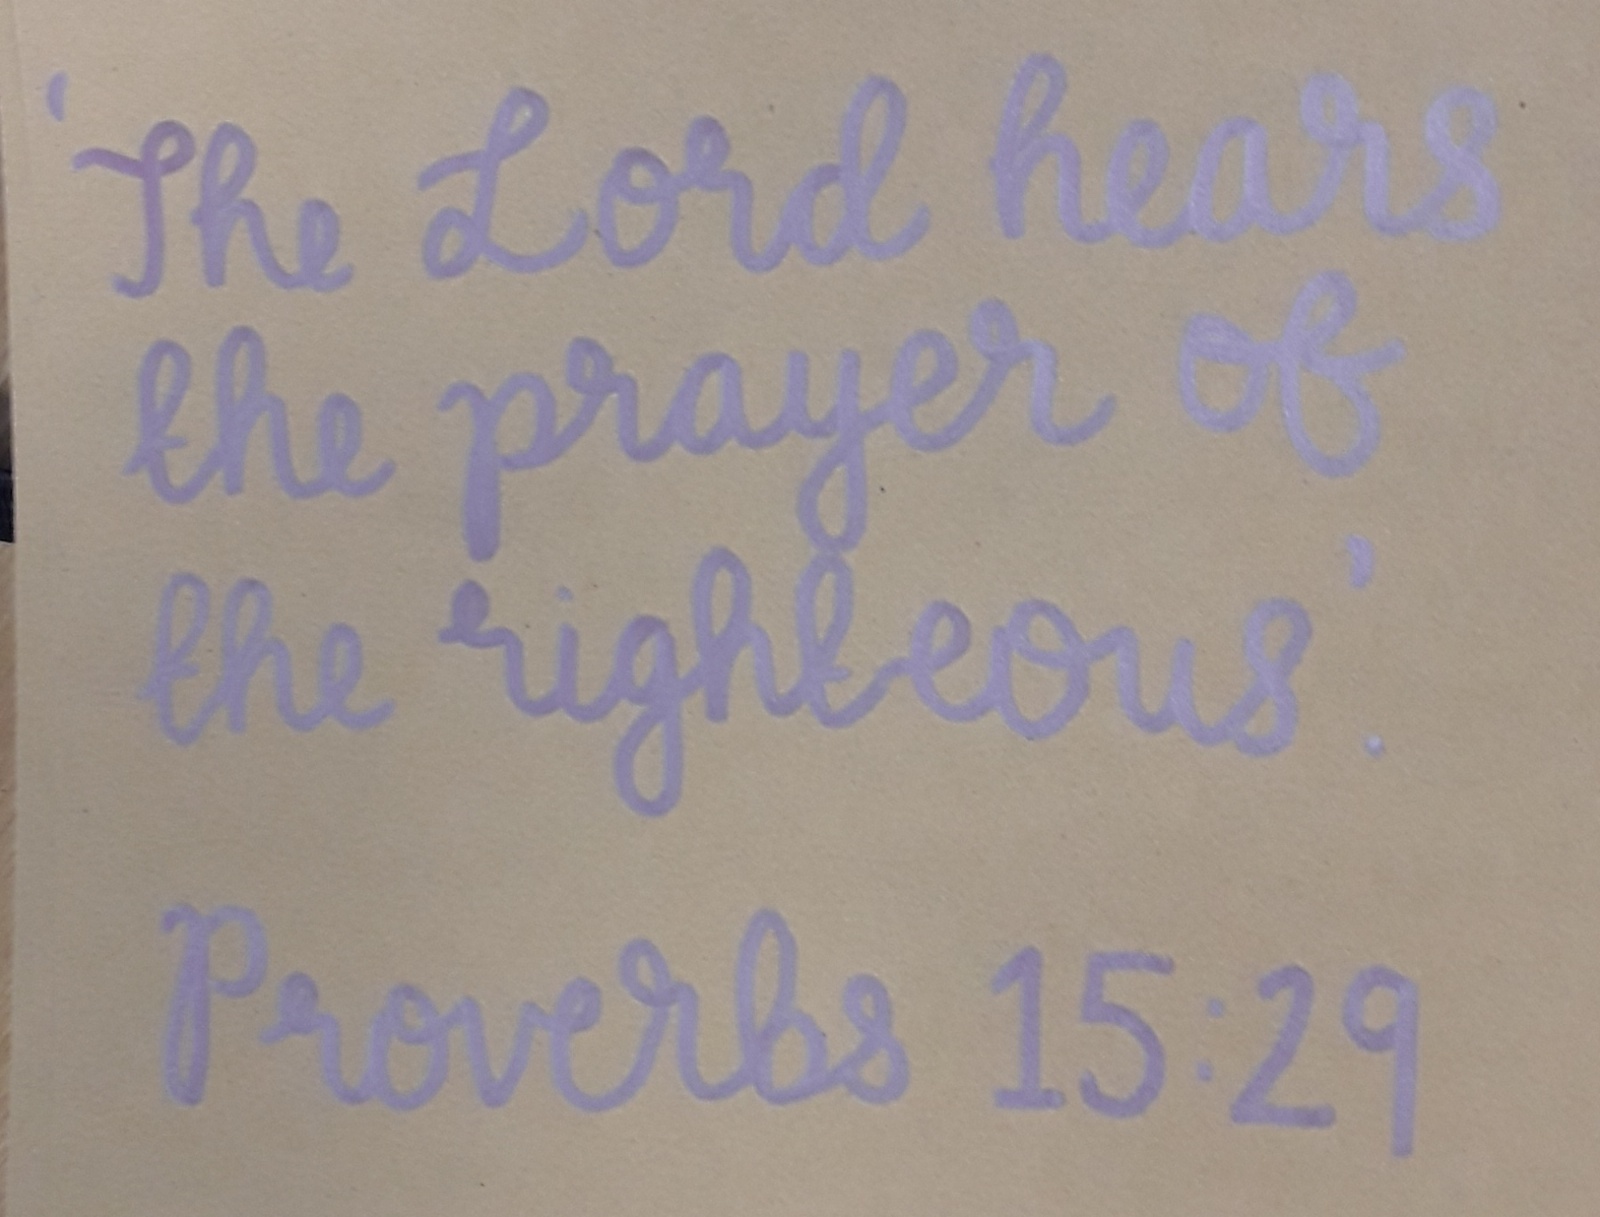 'The Lord hears
the prayer of
the righteous'.
Proverbs 15:29